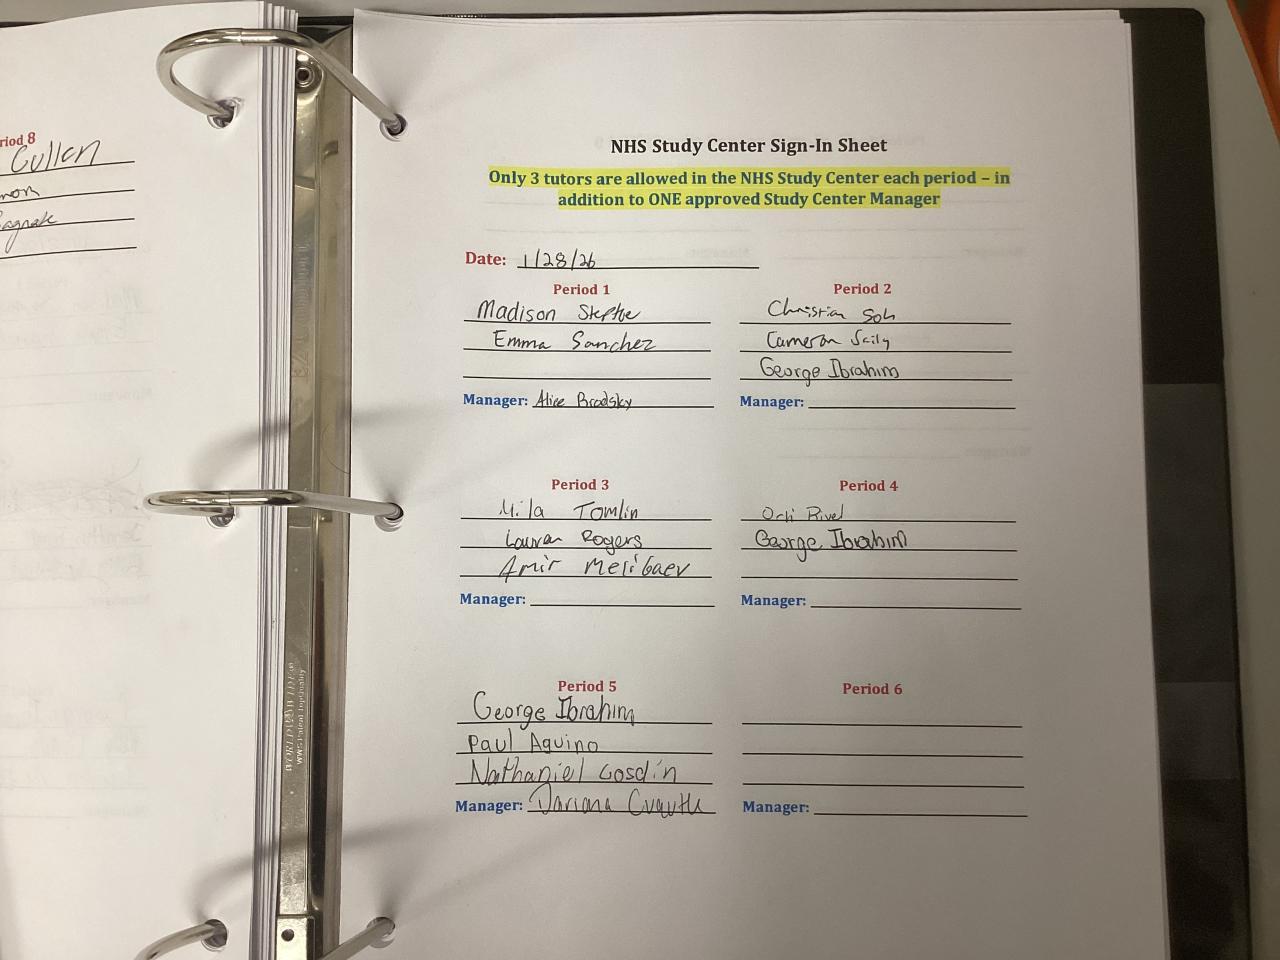 Period 8
Cullen
NHS Study Center Sign-In Sheet
Only 3 tutors are allowed in the NHS Study Center each period – in
addition to ONE approved Study Center Manager
Date: 1/28/26
Period 1
Madison Steptoe
Emma Sanchez
Manager: Alice Brodsky
Period 2
Christian Soh
Cameron Scily
George Ibrahim
Manager:
Period 3
Mila Tomlin
Lauren Rogers
Amir Melibaev
Manager:
Period 4
George Ibrahim
Manager:
Period 5
George Ibrahim
Paul Aquino
Nathaniel Cosdin
Manager: Dariana
Period 6
Manager: